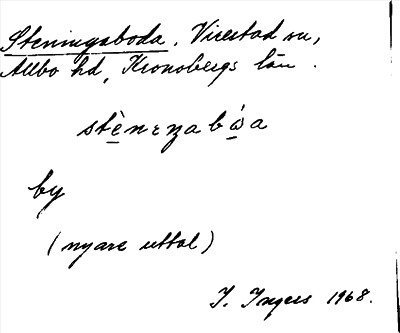 Steningsboda, Virestad sn,
Allbo hd, Kronobergs län.
by
(nyare uttal)
I. Ingers 1968.